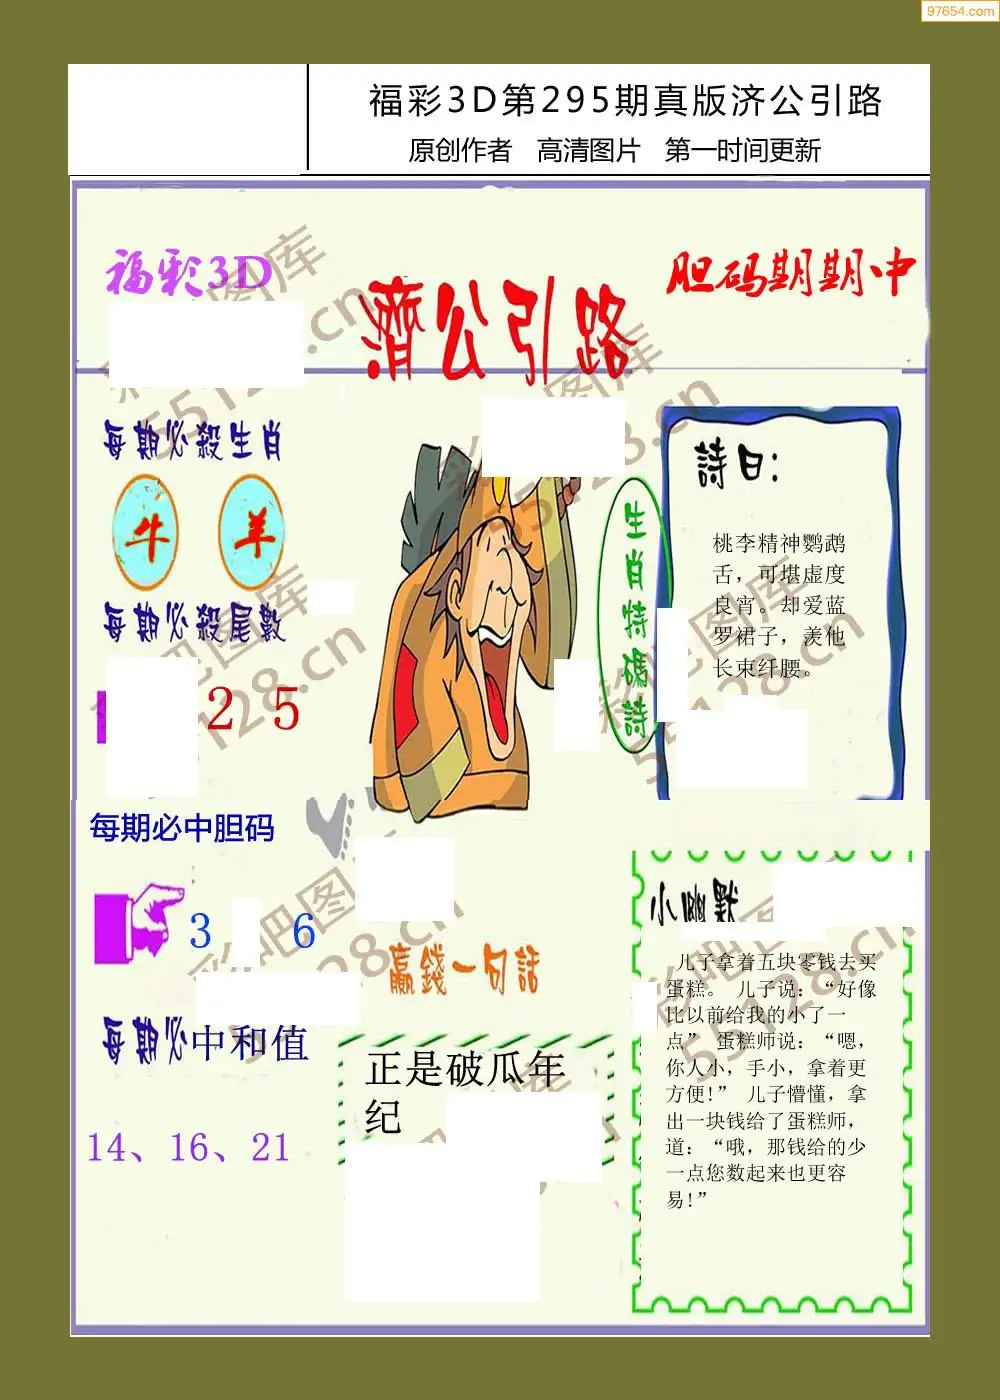 97654.com
福彩3D第295期真版济公引路
原创作者 高清图片 第一时间更新
福彩3D
濟公引路
胆码期期中
每期必殺生肖
牛 羊
每期必殺尾數
2 5
生肖特碼詩
詩曰：
桃李精神鹦鹉
舌，可堪虚度
良宵。却爱蓝
罗裙子，羡他
长束纤腰。
每期必中胆码
3 6
每期必中和值
14、16、21
贏錢一句話
正是破瓜年
纪
小幽默
儿子拿着五块零钱去买
蛋糕。 儿子说：“好像
比以前给我的小了一
点” 蛋糕师说：“嗯，
你人小，手小，拿着更
方便!” 儿子懵懂，拿
出一块钱给了蛋糕师，
道：“哦，那钱给的少
一点您数起来也更容
易!”
彩吧图库
55128.cn